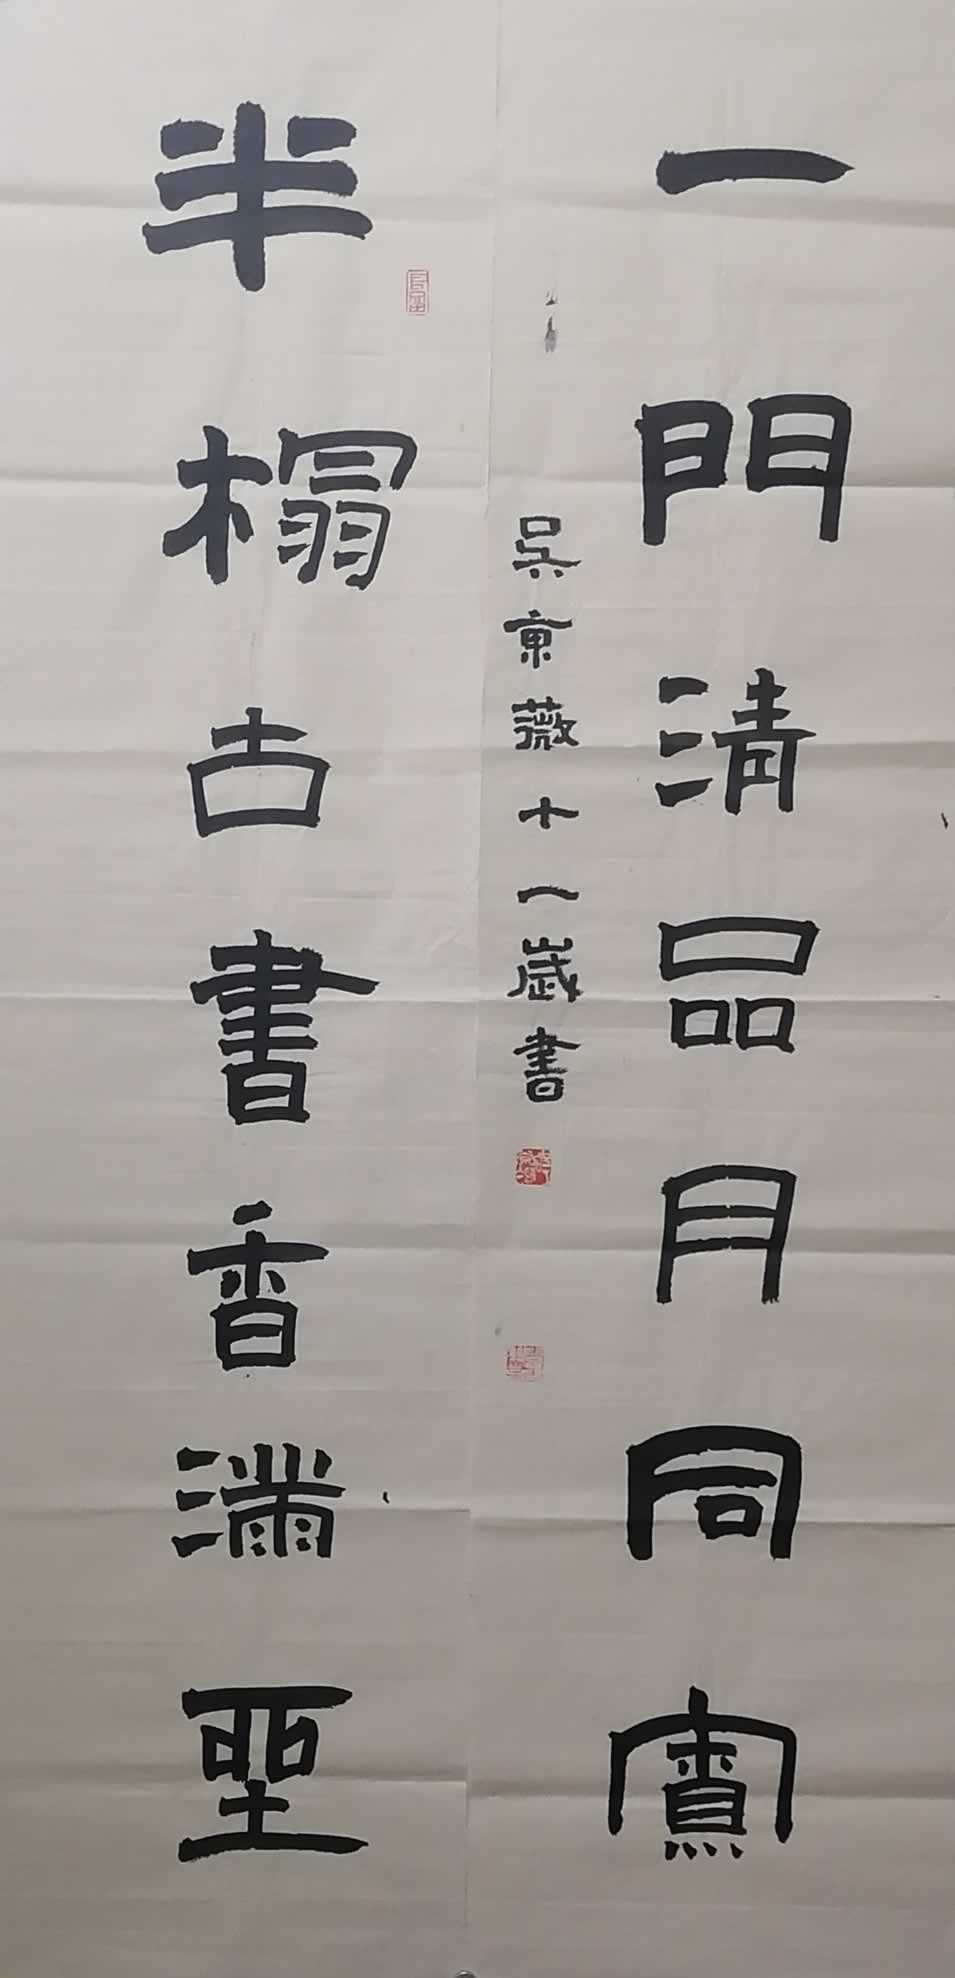 一門清品月同
半榻古書香滿
吳薇十一歲書